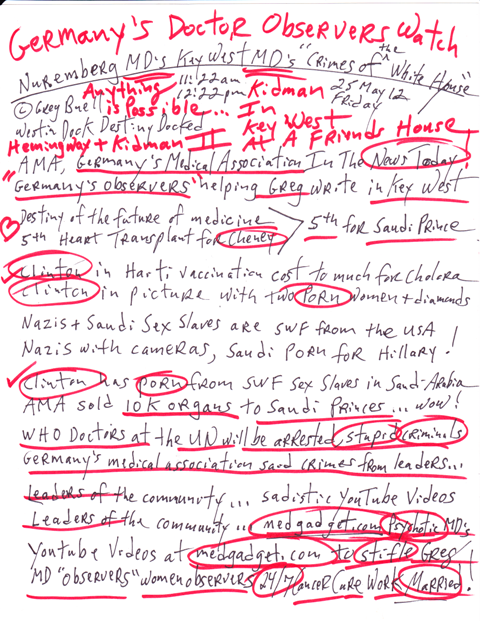 Germany's Doctor Observers Watch
Nuremberg MD's Key West MD's "Crimes of the White House"
Anything 11:22am Kidman 25 May 12
is Possible... 12:22pm In Friday
© Greg Buell Key West
Westin Dock Destiny Docked At A Friends House
Hemingway + Kidman II
AMA, Germany's Medical Association In The News Today!
"Germany's observers" helping Greg write in Key West
Destiny of the future of medicine
5th Heart Transplant for Cheney 5th for Saudi Prince
Clinton in Harti vaccination cost to much for Cholora
Clinton in picture with two Porn women + diamonds
Nazis + Saudi Sex Slaves are SWF from the USA
Nazis with cameras, Saudi Porn for Hillary!
Clinton has porn from SWF Sex Slaves in Saudi-Arabia
AMA sold 10K organs to Saudi Princes... wow!
WHO Doctors at the UN will be arrested, stupid criminals
Germany's medical association said crimes from leaders...
Leaders of the community... sadistic YouTube Videos
Leaders of the community... medgadget.com Psyshotic MD's
Youtube Videos at medgadget.com to stifle Greg
MD "observers" women observers 24/7 Cancer Cure Work Married!